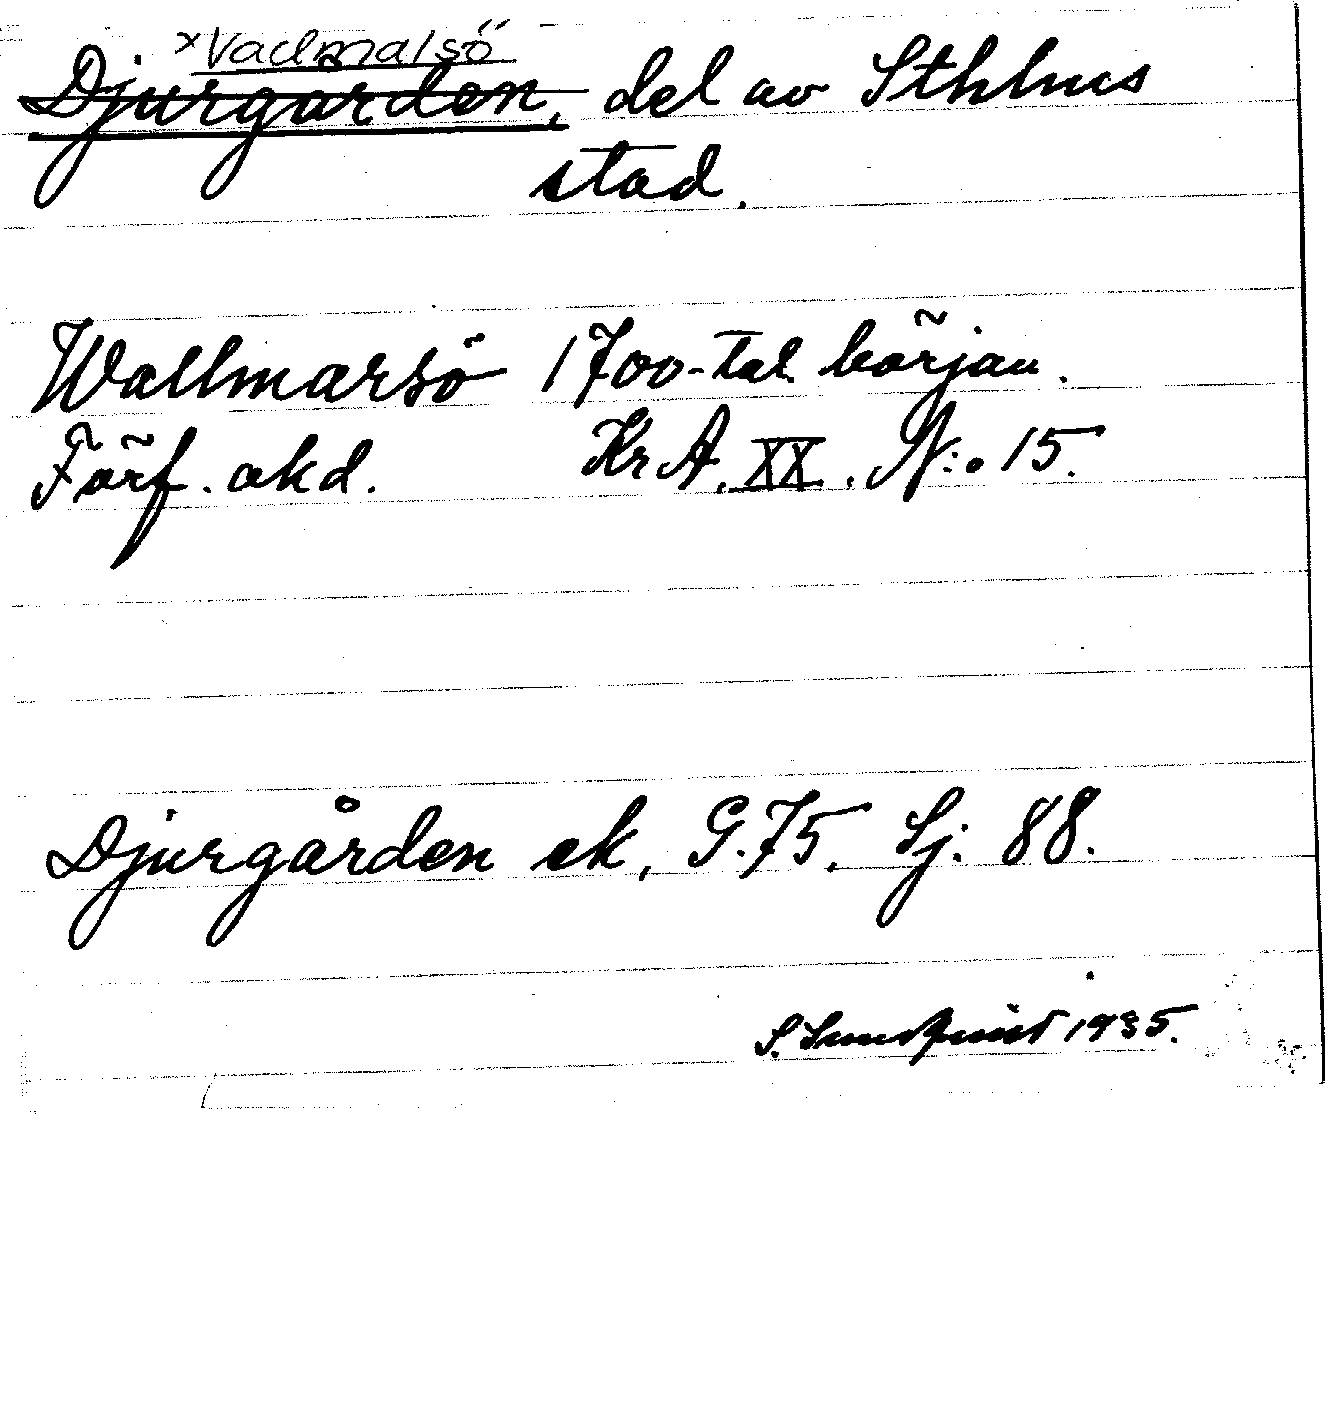 ×Vadmalsö
Djurgården, del av Sthlms
stad.
Wallmarsö 1700-tal. början.
Förf. okd. Kr A. XX. N:o 15.
Djurgården ek, G.75. Lj. 88.
S. Sundquist 1935.